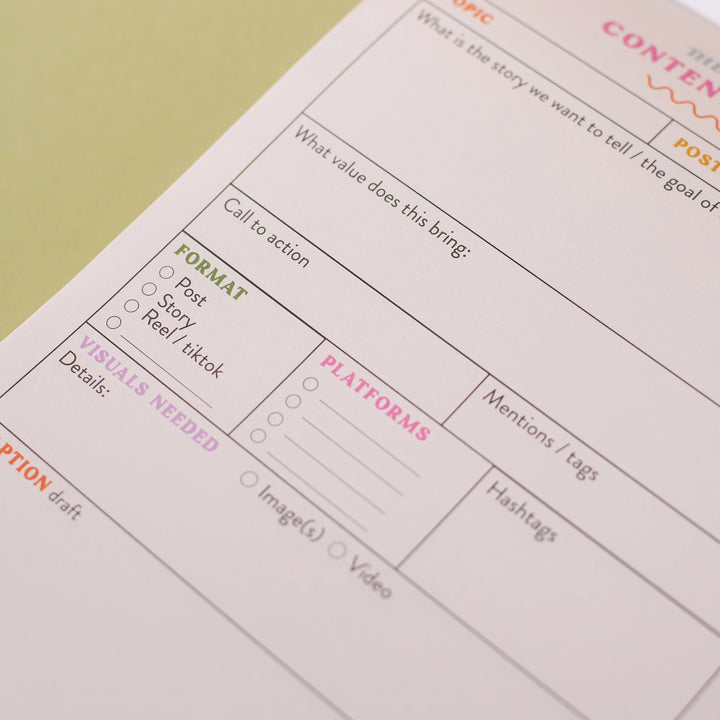 THE
CONTEN
OPIC
What is the story we want to tell / the goal of
POST
What value does this bring:
Call to action
FORMAT
Post
Story
Reel / tiktok
PLATFORMS
Mentions / tags
Hashtags
VISUALS NEEDED
Details:
Image(s)
Video
APTION draft